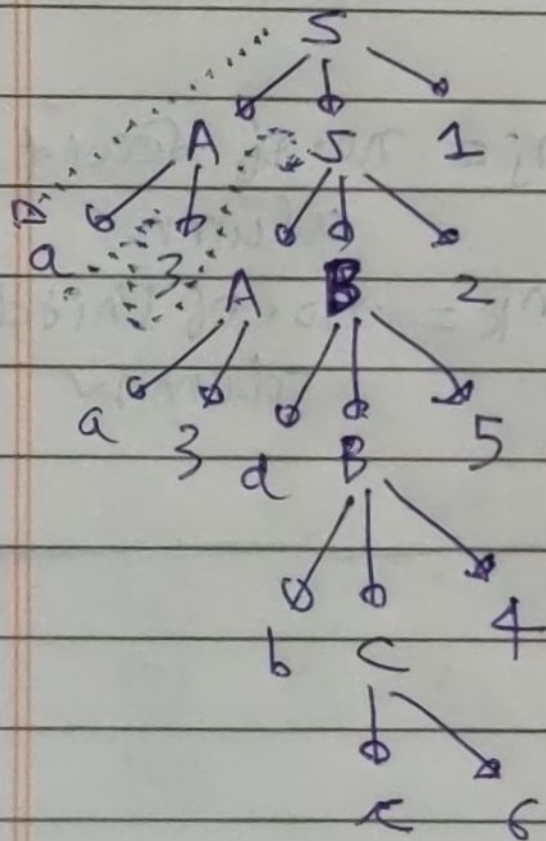 S
A S 1
a 3 A B 2
a 3 d B 5
b C 4
c 6